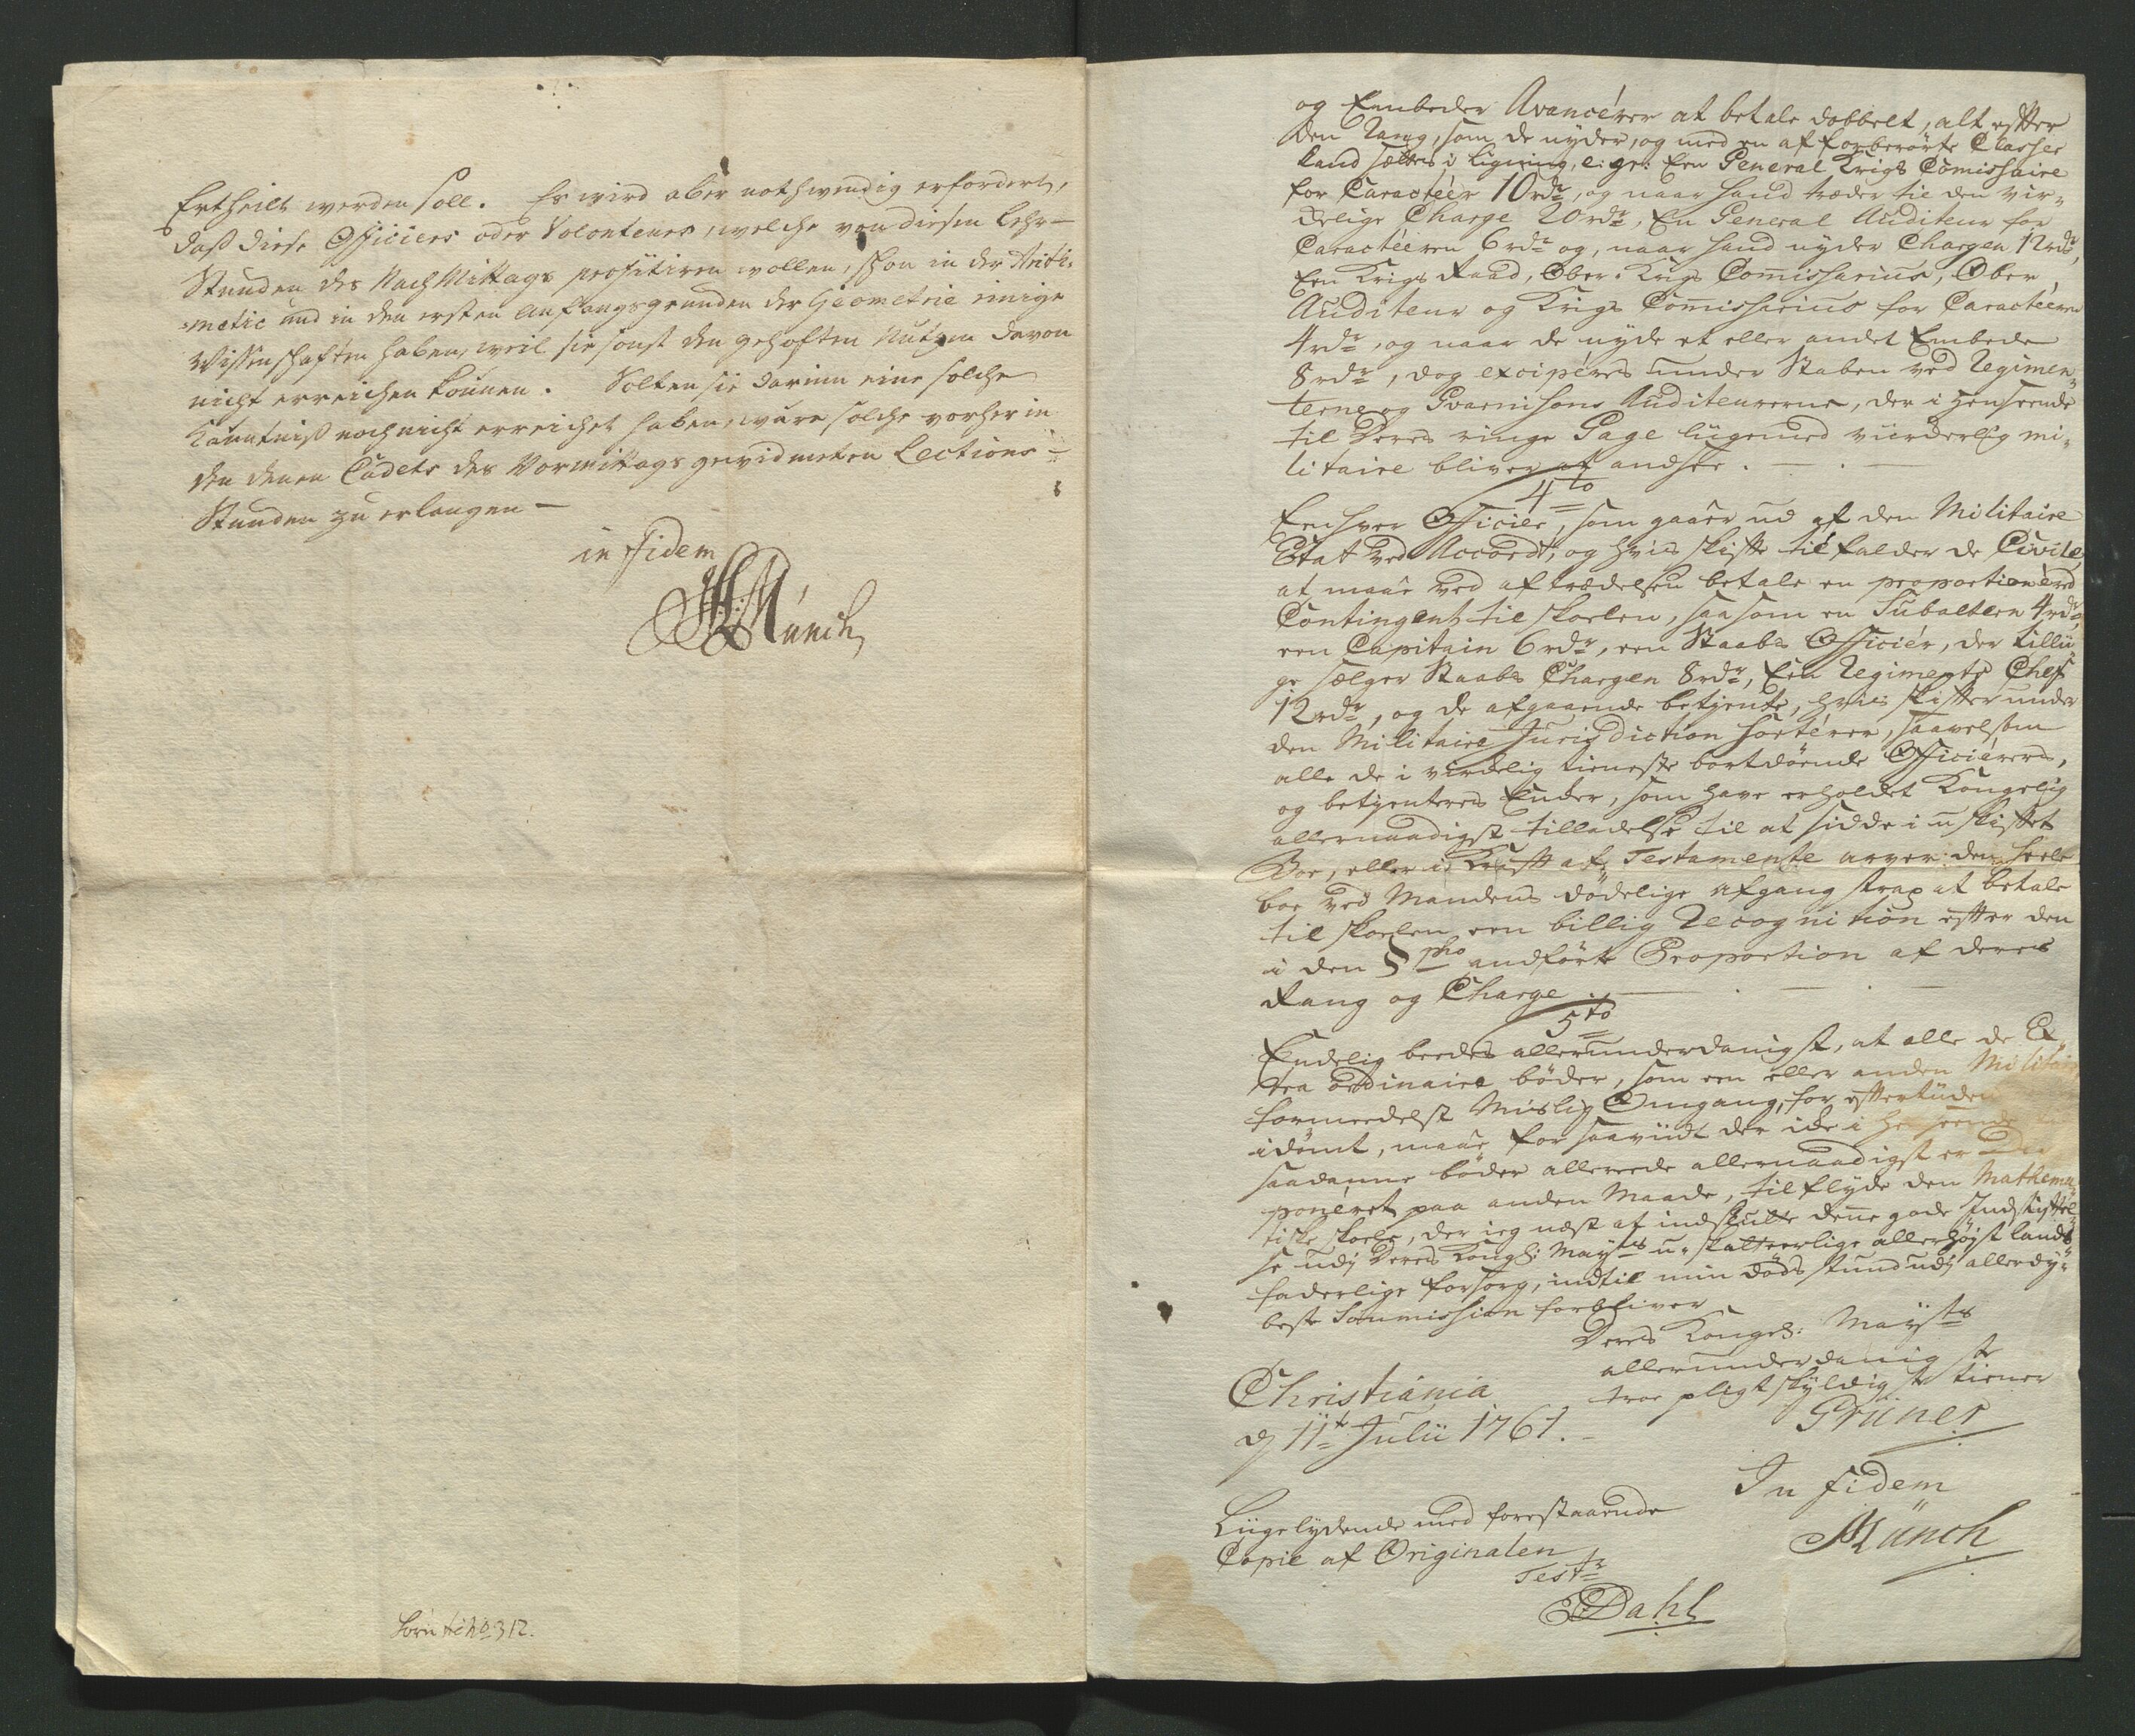 Ertheilt werden soll. Es wird aber nothwendig erfordert,
daß diese Officiers oder Volonteurs, welche von diesen Lehr-
Stunden des NachMittags profitiren wollen, schon in der Arith-
=metic und in den ersten Anfangsgrunden der Geometrie einige
Wissenschaften haben, weil sie sonst den gehofften Nutzen davon
nicht erreichen können. Solten sie darinn eine solche
Känntniß noch nicht erreichet haben, wäre solche vorher in
den denen Cadets des Vormittags gewidmeten Lections-
Stunden zu erlangen -
in fidem
Münch
Lorn tc No 312.
og Embeder Avancérer at betale dobbelt, alt efter
den Rang, som de nyder, og med en af forberørte Classer
kand sættes i Ligning, e: gr: Een General Krigs Comissaire
for Caractéér 10 rdr, og naar hand træder til den vir-
kelige Charge 20 rdr, En General Auditeur for
Caractéeren 6 rdr og, naar hand nyder Chargen 12 rdr,
Een Krigs Raad, Ober-Krigs Comissarius, Ober
Auditeur og Krigs Comissarius for Caractéeren
4 rdr, og naar de nyde et eller andet Embede
8 rdr, dog excipéres under Staben ved Regimen-
terne og Gvarnisons Auditeurerne, der i Henseende
til Deres ringe Gage liigemed vürderlig mi-
litaire bliver at andsee.
4to
Enhver Officier, som gaaer ud af den Militaire
Etat ved Accordt, og hvis skifte tilfalder de Civile,
at maae ved aftrædelsen betale en proportionéred
Contingent til skoelen, saasom en Subaltern 4 rdr,
een Capitain 6 rdr, een Staabs Officiér, der tillii-
ge sælger Staabs Chargen 8 rdr, Een Regiments Chef
12 rdr, og de afgaaende betjente, hvis skifter under
den Militaire Jurisdiction Sortérer, saavelsom
alle de i virkelig tieneste bortdöende Officiérers,
og betjenteres Enker, som have erholdet Kongelig
allernaadigst Tilladelse til at sidde i u-skiftet
Boe, eller i Krafft af Testamente arver den heele
boe ved Mandens dödelige afgang strax at betale
til skoelen een billig Recognition efter den
i den § pho andförte Proportion af deres
Rang og Charge.
5to
Endelig beedes allerunderdanigst, at alle de Ex-
tra ordinaire böder, som een eller anden Militair
formedelst Mislig Omgang, for eftertiiden
idömt, maae for saaviidt der ikke i Henseende
saadanne böder allereede allernaadigst er
ponéret paa anden Maade, tilflyde den Mathema-
tiske skoele, der ieg næst at indslutte denne gode Indstiftel-
se udj Deres Kongl: Mayts u-skatteerlige allerhöyst lands
faderlige Forsorg, indtil min döds stund udj allerdy-
beste Soumission forbliver
Deres Kongel: Mayts
allerunderdanigste
troe pligtskyldigste tiener
Christiánia
d 11te Julii 1761.
Grüner
In fidem
Münch
Liigelydende med forestaaende
Copie af Originalen
Testr
Dahl